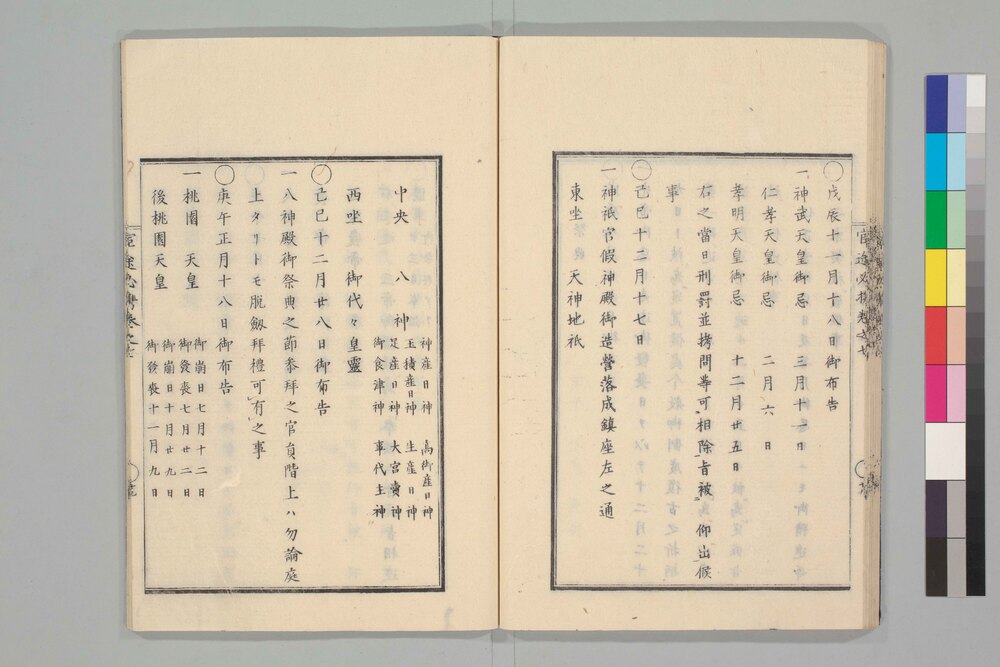 戊辰十一月十八日御布告
一神武天皇御忌　三月十一日
仁孝天皇御忌　二月六日
孝明天皇御忌　十二月廿五日
右之當日刑罰並拷問等可相除旨被爲仰出候
事
己巳十二月十七日
一神祇官假神殿御造營落成鎮座左之通
東坐　天神地祇
中央　八神　神産日神　高御産日神
玉積産日神　生産日神
足産日神　大宮賣神
御食津神　事代主神
西坐　御代々皇靈
己巳十二月廿八日御布告
一八神殿御祭典之節參拜之官員階上ハ勿論庭
上タリトモ脱劔拜禮可有之事
庚午正月十八日御布告
一桃園天皇　御崩日七月十二日
御發喪七月廿二日
後桃園天皇　御崩日十月廿九日
御發喪十一月九日